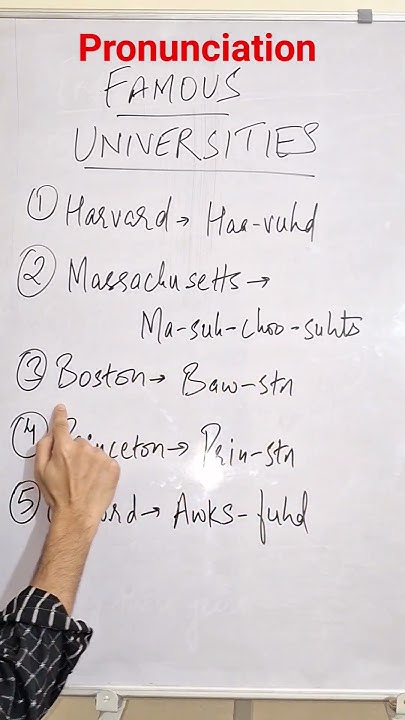 Pronunciation
FAMOUS
UNIVERSITIES
① Harvard → Haa-vuhd
② Massachusetts →
Ma-suh-choo-suhts
③ Boston → Baw-stn
④ Princeton → Prin-stn
⑤ → Awks-fuhd